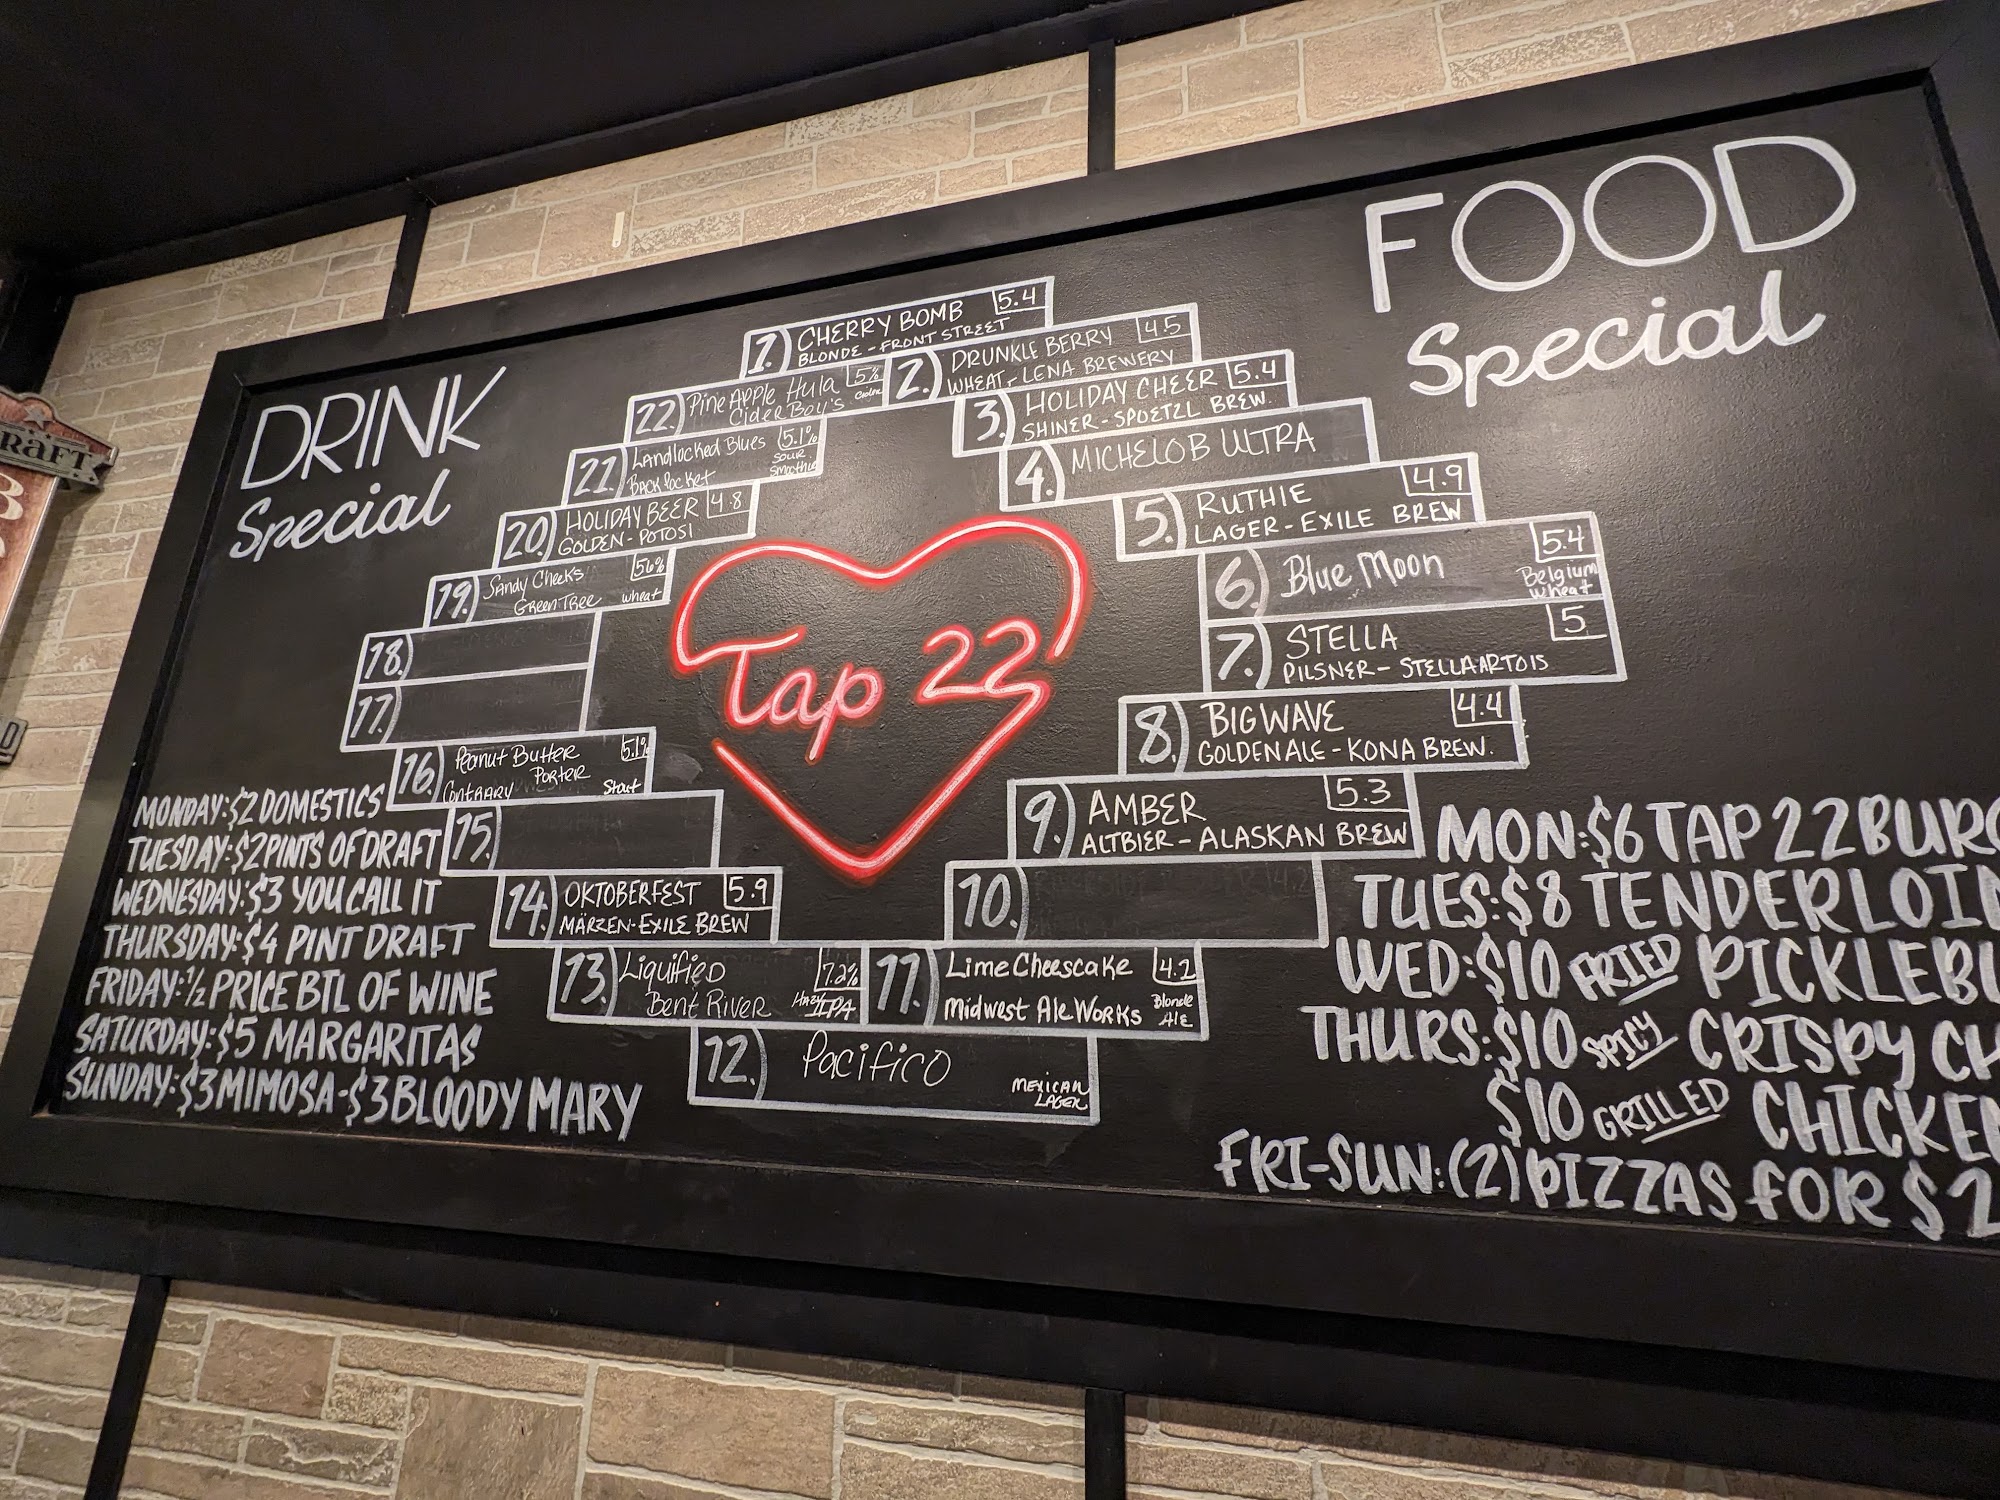 DRINK
Special
MONDAY: $2 DOMESTICS
TUESDAY: $2 PINTS OF DRAFT
WEDNESDAY: $3 YOU CALL IT
THURSDAY: $4 PINT DRAFT
FRIDAY: 1/2 PRICE BTL OF WINE
SATURDAY: $5 MARGARITAS
SUNDAY: $3 MIMOSA - $3 BLOODY MARY
1.) CHERRY BOMB 5.4
BLONDE - FRONT STREET
2.) DRUNKLE BERRY 4.5
WHEAT - LENA BREWERY
3.) HOLIDAY CHEER 5.4
SHINER - SPOETZL BREW.
4.) MICHELOB ULTRA
5.) RUTHIE 4.9
LAGER - EXILE BREW
6.) Blue Moon 5.4
Belgium
Wheat
7.) STELLA 5
PILSNER - STELLA ARTOIS
8.) BIG WAVE 4.4
GOLDEN ALE - KONA BREW.
9.) AMBER 5.3
ALTBIER - ALASKAN BREW
10.)
11.) Lime Cheescake 4.2
Midwest Ale Works Blonde
ALE
12.) Pacifico
MEXICAN
LAGER
13.) Liquified 7.2%
Bent River Hazy IPA
14.) OKTOBERFEST 5.9
MÄRZEN - EXILE BREW
15.)
16.) Peanut Butter 5.1%
Porter
Contrary Stout
17.)
18.)
19.) Sandy Cheeks 5.6%
Green Tree wheat
20.) HOLIDAY BEER 4.8
GOLDEN - POTOSI
21.) Landlocked Blues 5.1%
Back Pocket Sour
Smoothie
22.) PineApple Hula 5%
Cider Boy's
Tap 22
FOOD
Special
MON: $6 TAP 22 BURG
TUES: $8 TENDERLOIN
WED: $10 FRIED PICKLE
THURS: $10 SPICY CRISPY
$10 GRILLED CHICKEN
FRI-SUN: (2) PIZZAS FOR $2
CRAFT